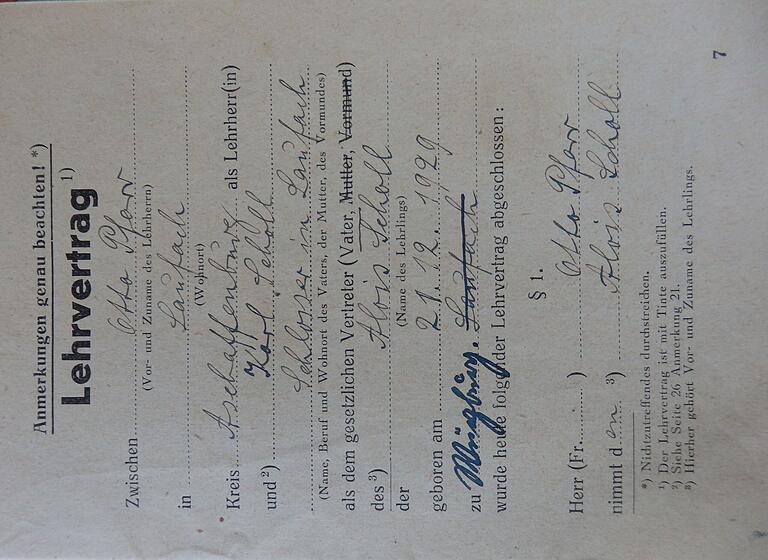 Anmerkungen genau beachten! *)
Lehrvertrag 1)
Zwischen Otto Pfarr
(Vor- und Zuname des Lehrherrn)
in Laufach
(Wohnort)
Kreis Aschaffenburg als Lehrherr(in)
und 2) Karl Scholl
Schlosser in Laufach
(Name, Beruf und Wohnort des Vaters, der Mutter, des Vormundes)
als dem gesetzlichen Vertreter (Vater, Mutter, Vormund)
des 3) Alois Scholl
der (Name des Lehrlings)
geboren am 21.12.1929
zu Würzburg. Laufach
wurde heute folgender Lehrvertrag abgeschlossen:
§ 1.
Herr (Fr. ) Otto Pfarr
nimmt den 3) Alois Scholl
*) Nichtzutreffendes durchstreichen.
1) Der Lehrvertrag ist mit Tinte auszufüllen.
2) Siehe Seite 26 Anmerkung 21.
3) Hierher gehört Vor- und Zuname des Lehrlings.
7